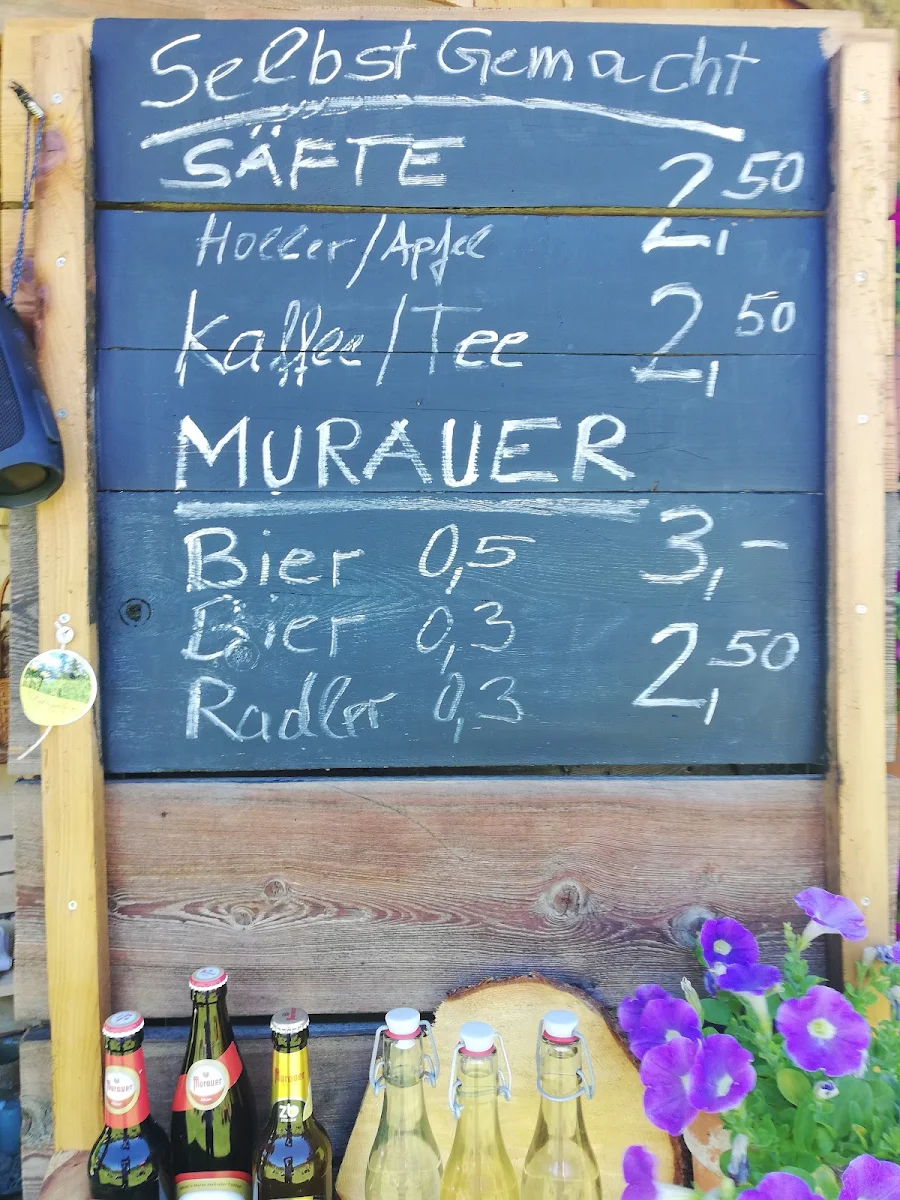 Selbst Gemacht
SÄFTE 2,50
Holler/Apfel
Kaffee/Tee 2,50
MURAUER
Bier 0,5 3,-
Bier 0,3
Radler 0,3 2,50
Murauer
Murauer
Murauer
Zb